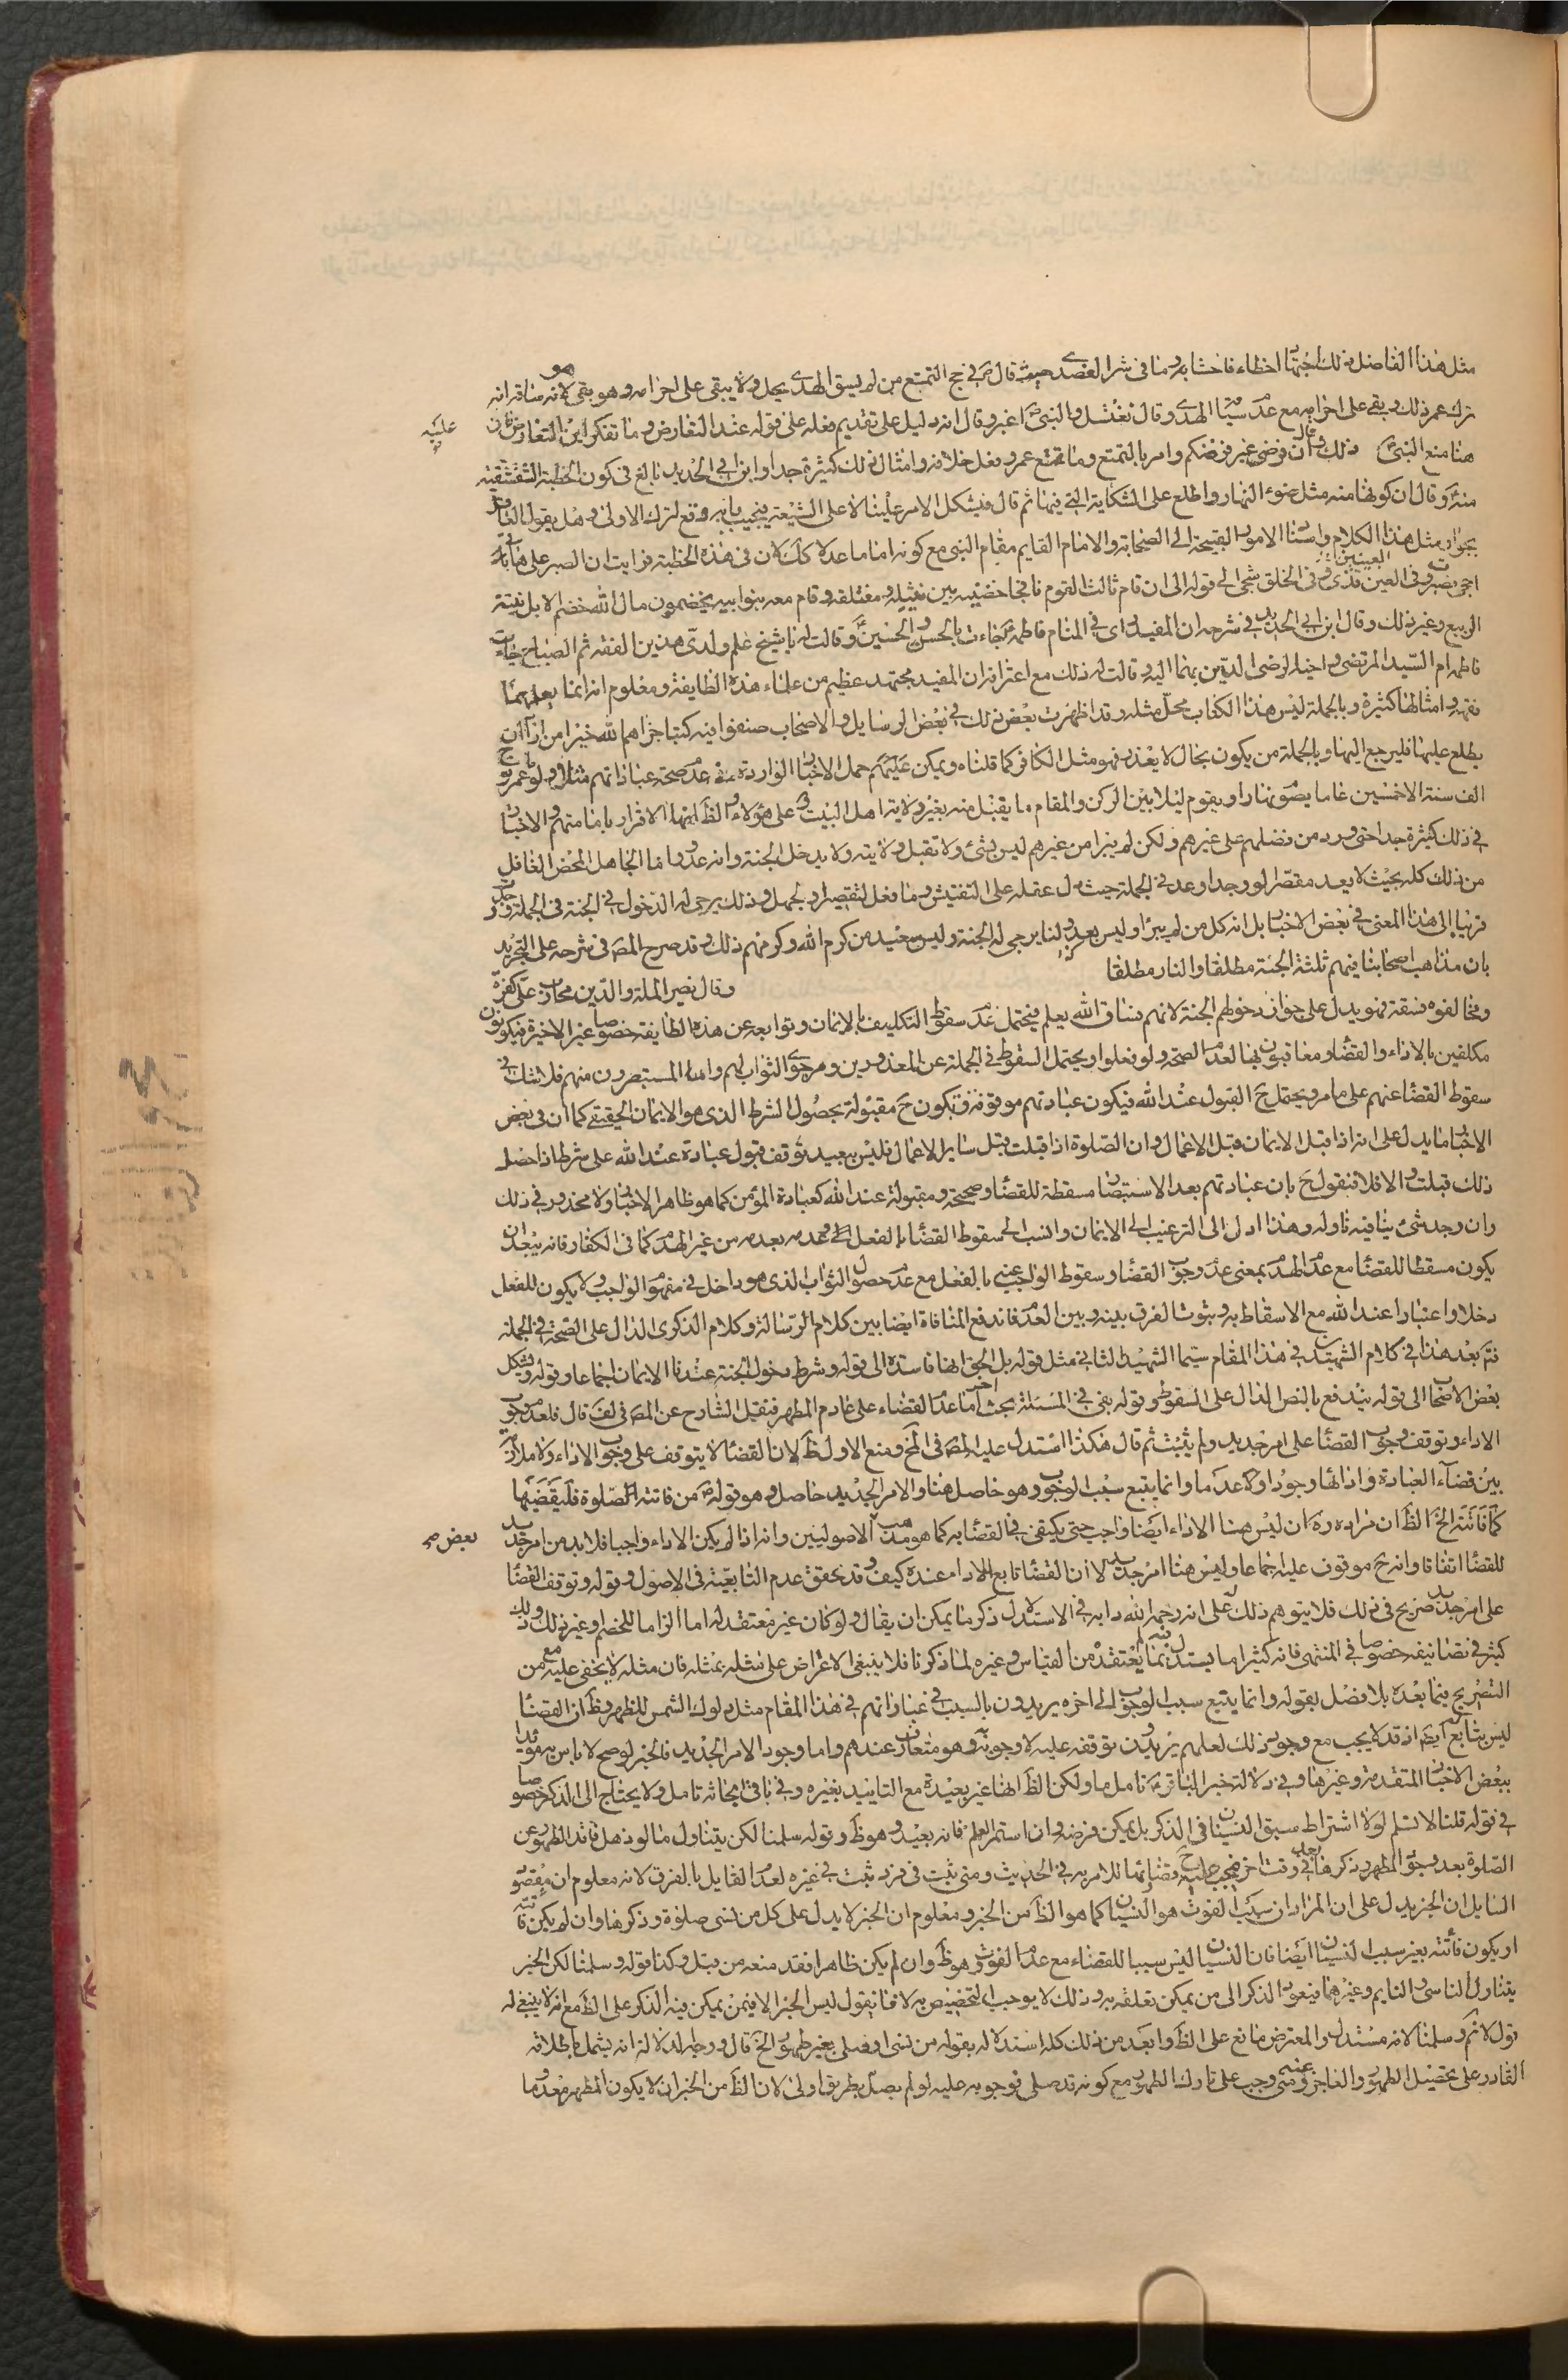 مثل هذا الفاضل ذلك اجتهادا اخطاء فاحشا به وما في شرا لعضدي حيث قال ص في حج التمتع من لم يسق الهدي يحل ولا يبقى على احرامه وهو بقى لانه ساقه انه
ترك عمر ذلك وبقي على احرامه مع عدم سياق الهدي وقال نغتسل والنبي ص اغبر وقال انه دليل على تقديم فعله على قوله عند التعارض وما تفكر اين التعارض فان
هنا منع النبي ذلك وقال ان فرضي غير فرضكم وامر بالتمتع وما تمتع عمر وفعل خلافه وامثال ذلك كثيرة جدا وابن ابي الحديد بالغ في كون الخطبة الشقشقية
منه وقال ان كونها منه مثل ضوء النهار واطلع على الشكاية التي فيها ثم قال فيشكل الامر علينا لا على الشيعة فيجيب بانه وقع لترك الاولى وهل يقول العاقل
بجواز مثل هذا الكلام واسناد الامور القبيحة الى الصحابة والامام القايم مقام النبي مع كونه اماما عدلا كذلك لان في هذه الخطبة فرايت ان الصبر على هاتا
احجى فصبرت وفي العين قذى وفي الخلق شجى الى قوله الى ان قام ثالث القوم نافجا حضنيه بين نثيله ومعتلفه وقام معه بنوا ابيه يخضمون مال الله خضم الابل نبتة
الربيع وغير ذلك وقال ابن ابي الحديد في شرحه ان المفيد راى في المنام فاطمة جاءت بالحسن والحسين وقالت له يا شيخ علم ولدي هذين الفقه ثم الصباح جاءت
فاطمه ام السيد المرتضى واخيه الرضى الدين بهما اليه وقالت له ذلك مع اعترافه ان المفيد مجتهد عظيم من علماء هذه الطايفة ومعلوم انه انما يعلمهما
فقهه وامثالها كثيرة وبالجملة ليس هذا الكتاب محل مثله وقد اظهرت بعض ذلك في بعض الرسايل والاصحاب صنفوا فيه كتبا جزاهم الله خيرا من اراد ان
يطلع عليها فليرجع اليها وبالجملة من يكون بحال لا يعذر فهو مثل الكافر كما قلناه ويمكن عليهم حمل الاخبار الواردة في عدم صحة عباداتهم مثل ولو عمر نوح
الف سنة الا خمسين عاما يصوم نهارا ويقوم ليلا بين الركن والمقام ما يقبل منه بغير ولاية اهل البيت وعلى هؤلاء والظ انها الاقرار بامامتهم والاخبار
في ذلك كثيرة جدا حتى ورد من فضلهم على غيرهم ولكن لم يبرا من غيرهم ليس بشئ ولا تقبل ولايته ولا يدخل الجنة وانه عدو واما الجاهل المحض الغافل
من ذلك كله بحيث لا يعد مقصرا لو وجدا وعد في الجملة حيث دل عقله على التفتيش وما فعل لتقصير او لجهل وذلك يرجى له الدخول في الجنة في الجملة ووجدت
قريبا الى هذا المعنى في بعض الاخبار بل انه كل من لم يبرا وليس بعدو لنا يرجى له الجنة وليس ببعيد من كرم الله وكرمهم ذلك وقد صرح المص في شرحه على التجريد
بان مذاهب اصحابنا فيهم ثلثة الجنة مطلقا والنار مطلقا وقال نصير الملة والدين محارب علي كفرة
ومخالفوه فسقة فهو يدل على جواز دخولهم الجنة لانهم فساق الله يعلم فيحتمل عدم سقوط التكليف بالايمان وتوابعه عن هذه الطايفة خصوصا غير الاخيرة فيكونون
مكلفين بالاداء والقضا ومعاقبون بها لعدم الصحة ولو فعلوا ويحتمل السقوط في الجملة عن المعذورين ومرجوى الثواب لهم واما المستبصرون منهم فلا شك في
سقوط القضا عنهم على ما مر ويحتمل ح القبول عند الله فيكون عبادتهم موقوفة وتكون ح مقبولة بحصول الشرط الذي هو الايمان الحقيقي كما ان في بعض
الاخبار ما يدل على انه اذا قبل الايمان قبل الاعمال وان الصلوة اذا قبلت قبل ساير الاعمال فليس ببعيد توقف قبول عبادة عند الله على شرطه اذا حصل
ذلك قبلت والا فلا فنقول ح بان عبادتهم بعد الاستبصار مسقطة للقضا وصحيحة ومقبولة عند الله كعبادة المؤمن كما هو ظاهر الاخبار ولا محذور في ذلك
وان وجد شئ ينافيه ناوله وهذا ادل الى الترغيب الى الايمان وانسب الى سقوط القضا بالفعل وعدمه بعدمه من غير الهدم كما في الكفار فانه يبعد ان
يكون مسقطا للقضا مع عدم الهدم بمعنى عدم وجوب القضا وسقوط الواجب عنه بالفعل مع عدم حصول الثواب الذي هو داخل في مفهوم الواجب ولا يكون للفعل
دخلا واعتبارا عند الله مع الاسقاط به وثبوت الفرق بينه وبين العدم فاندفع المنافاة ايضا بين كلام الرسالة وكلام الذكرى الدال على الصحة في الجملة
فتم بعد هذا في كلام الشهيدين في هذا المقام سيما الشهيد الثاني مثل قوله بل الحق انها فاسدة الى قوله وشرط دخول الجنة عندنا الايمان اجماعا وقوله ويشكل
بعض الاصحاب الى قوله يندفع بالنص الدال على السقوط وقوله بقي في المسئلة بحث اخر اما عدم القضاء على عادم المطهر فنقيل الشارح عن المص في لف قال فلعدم وجوب
الاداء وتوقف وجوب القضا على امر جديد ولم يثبت ثم قال هكذا استدل عليه المص في المخ ومنع الاول ظ لان القضا لا يتوقف على وجوب الاداء ولا ملازمة
بين قضاء العبادة واداءها وجودا ولا عدما وانما يتبع سبب الوجوب وهو حاصل هنا والامر الجديد حاصل وهو قوله ص من فاتته الصلوة فليقضها
كما فاتته الخ الظ ان مراده ره ان ليس هنا الاداء ايضا واجب حتى يكتفى في القضا به كما هو مذهب بعض الاصوليين وانه اذا لم يكن الاداء واجبا فلا بد من امر جديد
للقضا اتفاقا وانه ح موقوف عليه اجماعا وليس هنا امر جديد لا ان القضا تابع الاداء عنده كيف وقد تحقق عدم التابعية في الاصول وقوله وتوقف القضا
على امر جديد صريح في ذلك فلا يتوهم ذلك على انه رحمه الله دابه في الاستدلال ذكر ما يمكن ان يقال ولو كان غير معتقد له اما الزاما للخصم وغير ذلك وذلك
كثير في تصانيفه خصوصا في المنتهى فانه كثيرا ما يستدل بما لا يعتقده من القياس وغيره لما ذكرنا فلا ينبغي الاعتراض على مثله بمثله فان مثله لا يخفى عليه مع من
التصريح فيما بعده بلا فصل بقوله وانما يتبع سبب الوجوب الى اخره يريدون بالسبب في عباراتهم في هذا المقام مثل دلوك الشمس للظهر وظ ان القضا
ليس بتابع ايضا اذ قد لا يجب مع وجود ذلك لعلهم يريدون توقفه عليه لا وجوبه وهو متعارف عندهم واما وجود الامر الجديد فالخبر لو صح لا باس به مؤيدا
ببعض الاخبار المتقدمة وغيرها وفي دلالة خبر الباقر ع تامل ما ولكن الظ انها غير بعيدة مع التاييد بغيره وفي باقي ابحاثه تامل ولا يحتاج الى الذكر خصوصا
في قوله قلنا لا نسلم لولا اشتراط سبق النسيان في الذكر بل يمكن فرضه وان استمر العلم فانه بعيد وهو ظ وقوله سلمنا لكن يتناول ما لو ذهل فاقد الطهور عن
الصلوة بعد وجود المطهر وذكرها في وقت اخر فيجب عليه ح قضائها للامر به في الحديث ومتى ثبت في فرد ثبت في غيره لعدم القايل بالفرق لانه معلوم ان مقصود
السايل ان الخبر يدل على ان المراد ان سبب الفوت هو النسيان كما هو الظ من الخبر ومعلوم ان الخبر لا يدل على كل من نسى صلوة وذكرها وان لم يكن فاتته
او يكون فائتته بغير سبب النسيان ايضا فان النسيان ليس سببا للقضاء مع عدم الفوت وهو ظ وان لم يكن ظاهرا فقد منعه من قبل وكذا قوله وسلمنا لكن الخبر
يتناول الناسي والنايم وغيرهما فيعود الذكر الى من يمكن تعلقه به وذلك لا يوجب التخصيص به لانا نقول ليس الخبر الا فيمن يمكن فيه الذكر على الظ مع انه لا ينبغي له
قول لانم وسلمنا لانه مستدل والمعترض مانع على الظ وابعد من ذلك كله استدلاله بقوله من نسى او صلى بغير طهور الخ قال ووجه الدلالة انه يشمل باطلاقه
القادر على تحصيل الطهور والعاجز عنه ومتى وجب على تارك الطهور مع كونه قد صلى فوجوبه عليه لو لم يصل بطريق اولى لان الظ من الخبر ان لا يكون المطهر معدوما